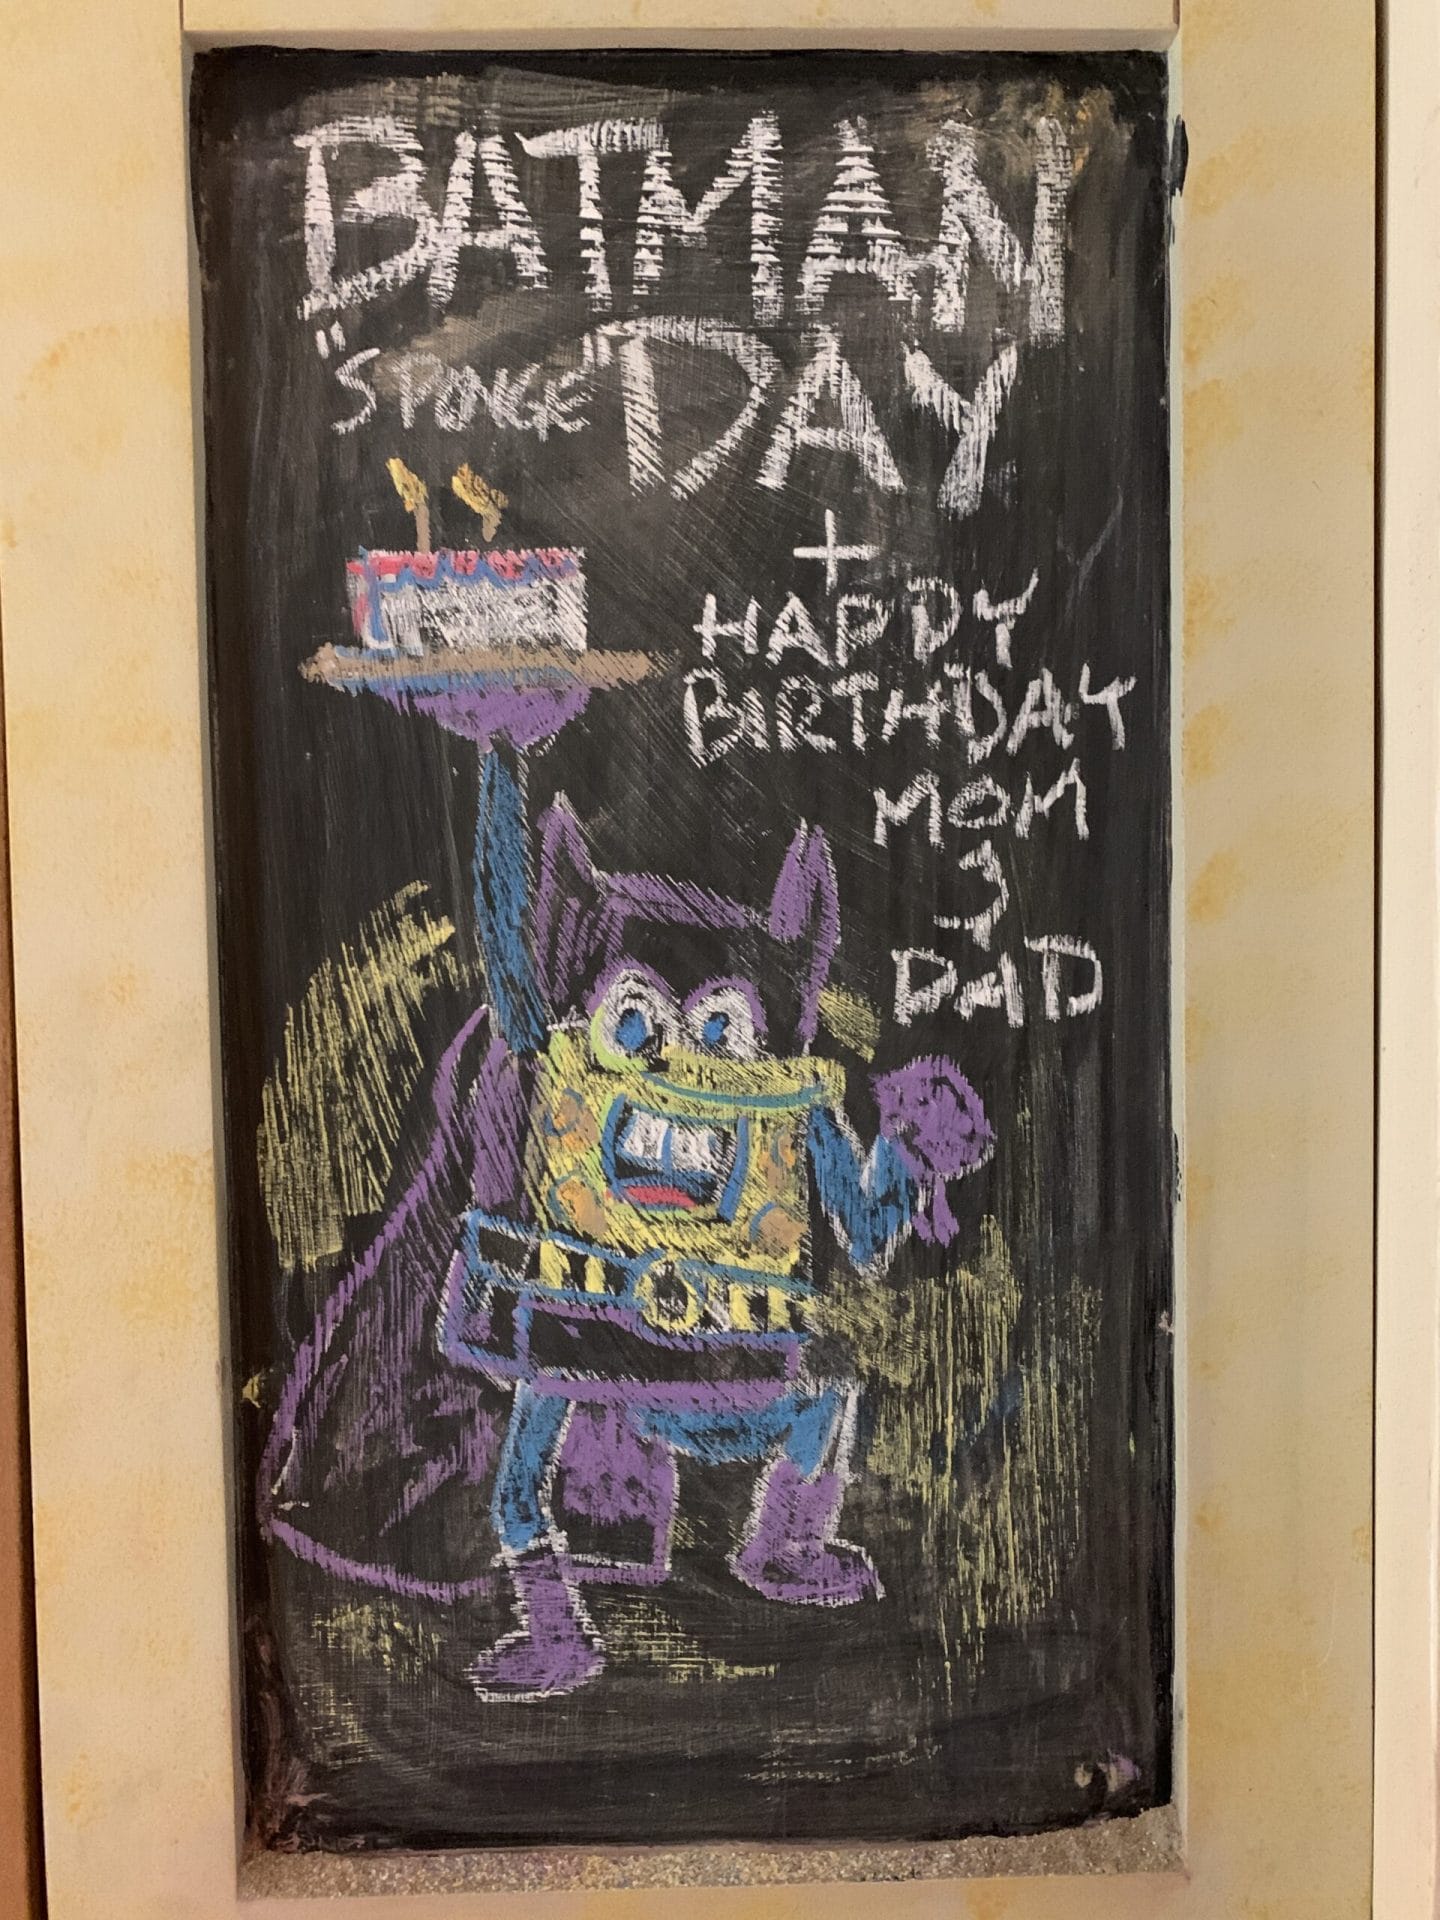 BATMAN
"SPONGE" DAY
+
HAPPY
BIRTHDAY
MOM
&
DAD